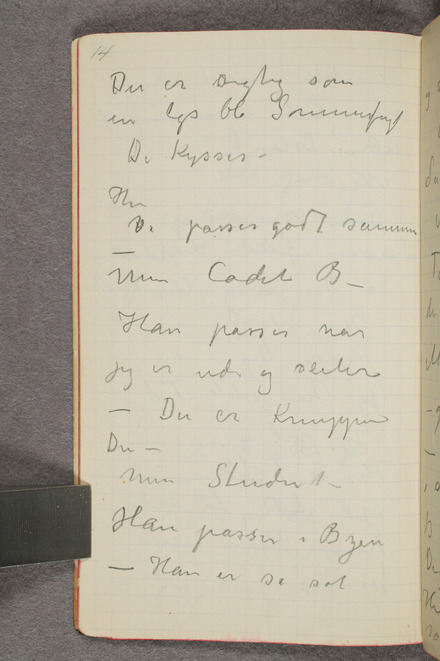 14
Du er deglig som
en lys blå Sommerfugl
De Kysses –
Hun
Vi passer godt sammen
—
Min Cadet B –
Han passer når
jeg er ude og seiler
— Du er Knuppen
Du –
min Student –
Han passer i Byen
— Han er så søt